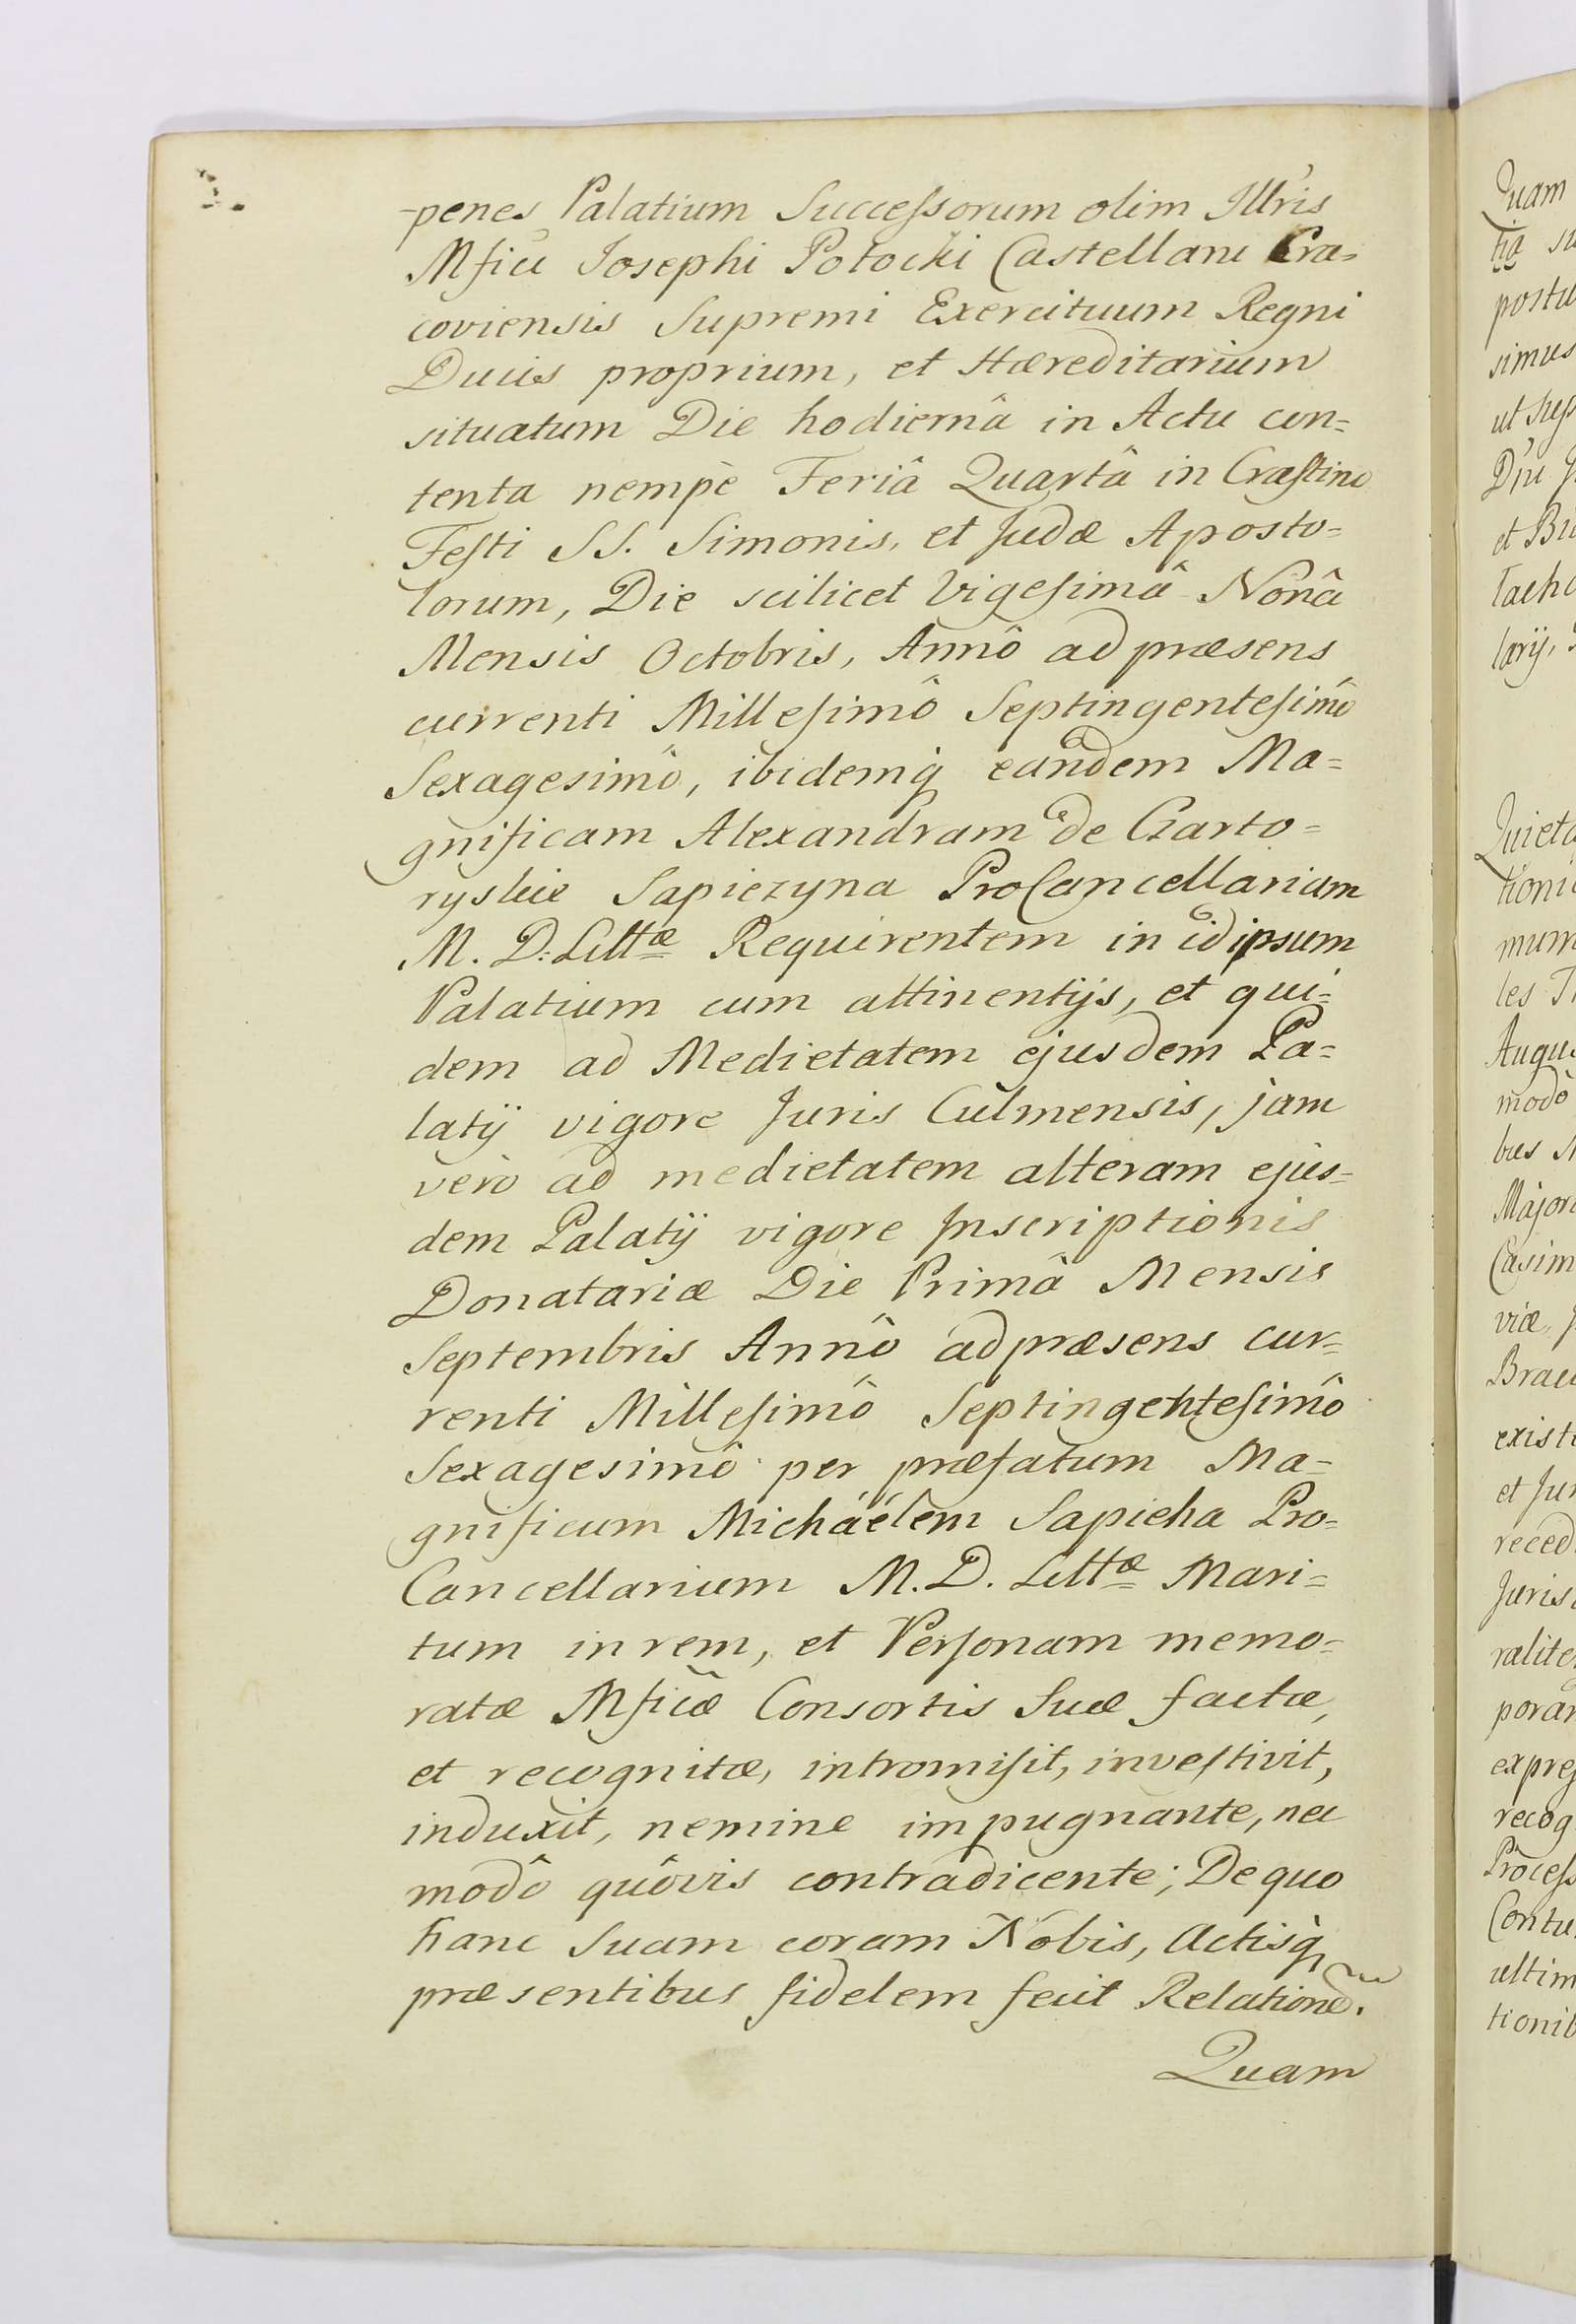 penes Palatium Successorum olim Illris
Mfici Josephi Potocki Castellani Cra=
coviensis Supremi Exercituum Regni
Ducis proprium, et Hæreditarium
situatum Die hodiernâ in Actu con=
tenta nempè Feriâ Quartâ in Crastino
Festi SS. Simonis, et Judæ Aposto=
lorum, Die scilicet Vigesimâ Nonâ
Mensis Octobris, Annô ad præsens
currenti Millesimô Septingentesimô
Sexagesimô, ibidemq eandem Ma=
gnificam Alexandram de Czarto=
ryskie Sapiezyna ProCancellariam
M. D: Littæ Requirentem in id ipsum
Palatium cum attinentijs, et qui=
dem ad Medietatem ejusdem Pa=
latij vigore Juris Culmensis, jam
verò ad medietatem alteram ejus=
dem Palatij vigore Inscriptionis
Donatariæ Die Primâ Mensis
Septembris Annô ad præsens cur=
renti Millesimô Septingentesimô
Sexagesimô per præfatum Ma=
gnificum Michaélem Sapieha Pro=
Cancellarium M. D. Littæ Mari=
tum in rem, et Personam memo=
ratæ Mficæ Consortis Suæ factæ,
et recognitæ, intromisit, investivit,
induxit, nemine impugnante, nec
modô quôvis contradicente; De quo
hanc Suam coram Nobis, Actisq
præsentibus fidelem fecit Relatione.
Quam
Quam
postu
simus
et Bu
larij,
Quieta
mum
les
Augus
modò
bus
Majori
Casim
viæ,
existe
et Jur
reced
Juris
ralite
porar
expres
recog
Process
Contu
ultim
tionib